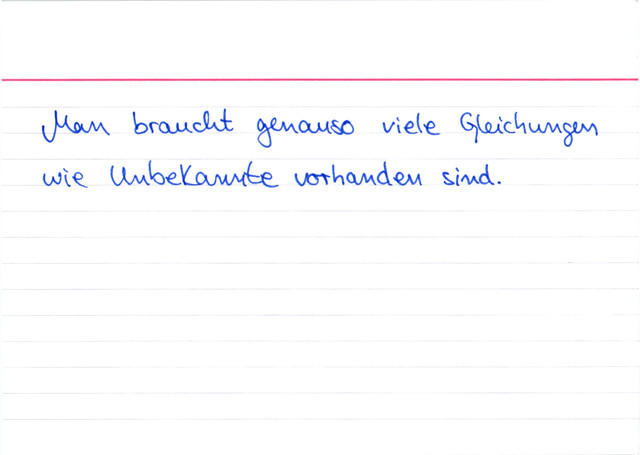 Man braucht genauso viele Gleichungen
wie Unbekannte vorhanden sind.